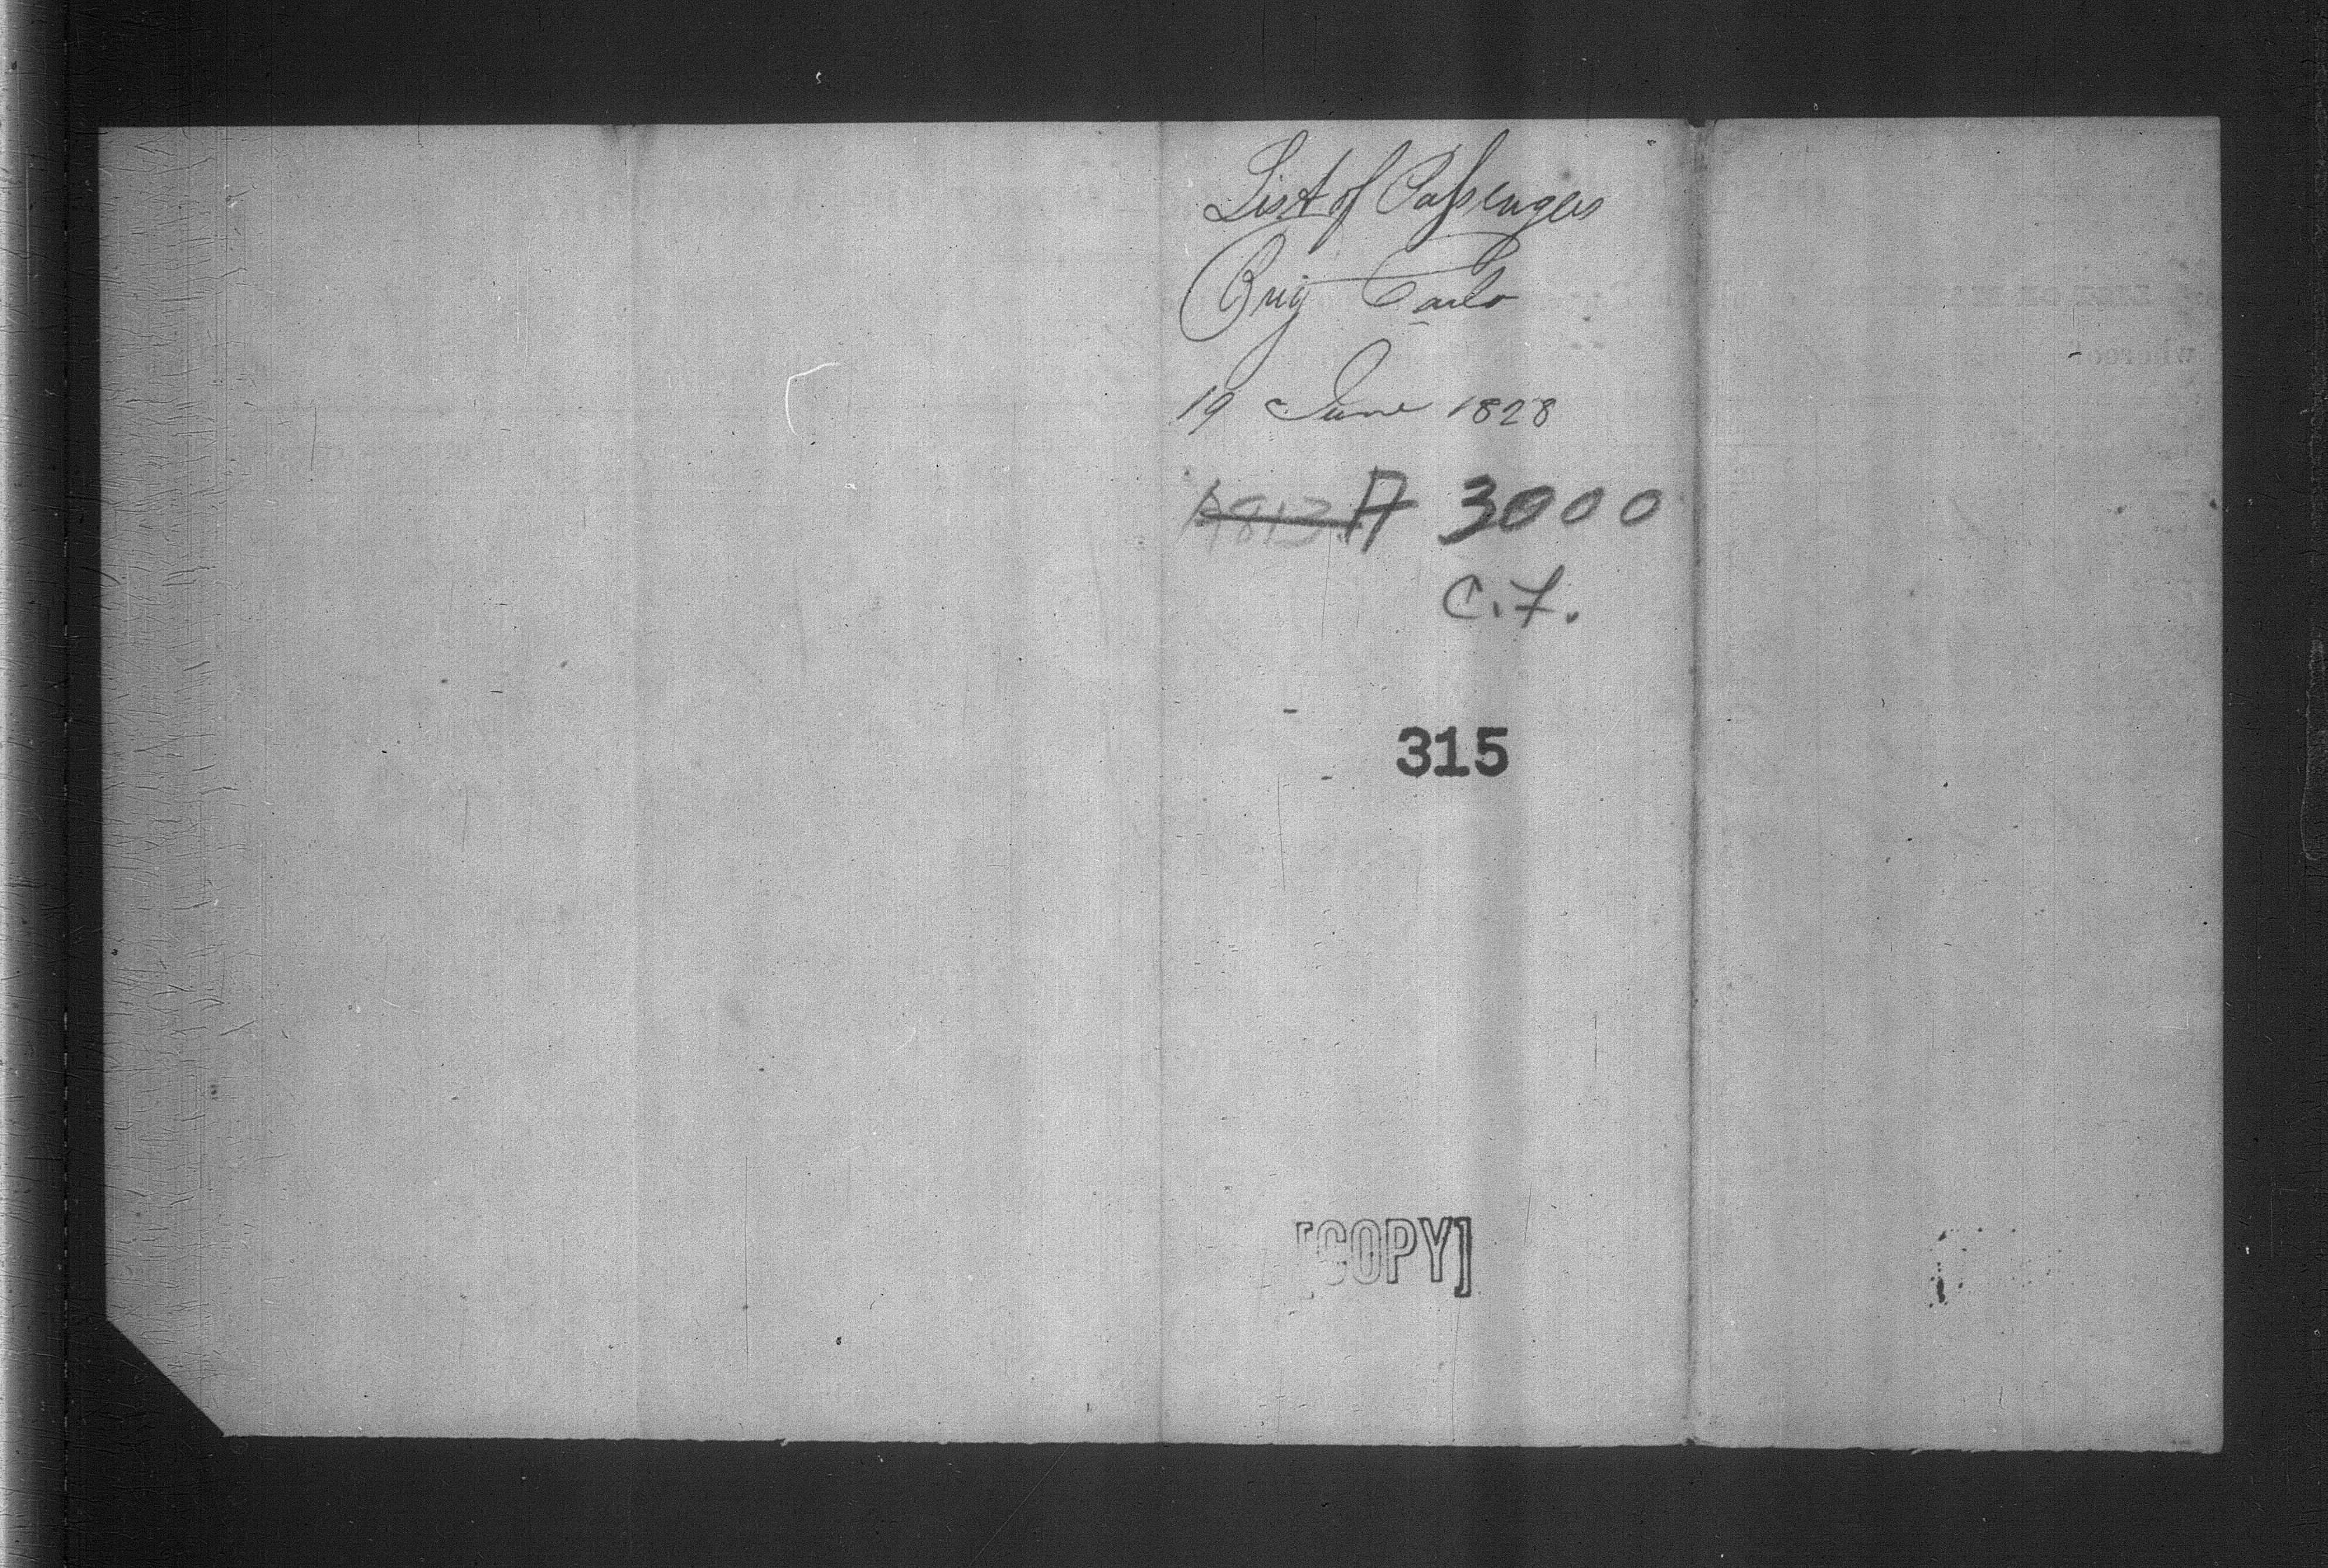 List of Passengers
Brig Carlo
19 June 1828
A813. A 3000
C.F.
315
[COPY]